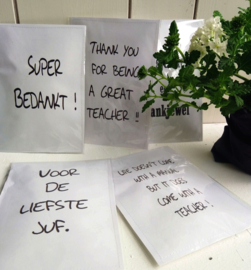 SUPER
BEDANKT !
THANK YOU
FOR BEING
A GREAT
TEACHER !!
ankjewel
VOOR
DE
LIEFSTE
JUF.
LIFE DOESN'T COME
WITH A MANUAL
BUT IT DOES
COME WITH A
TEACHER!